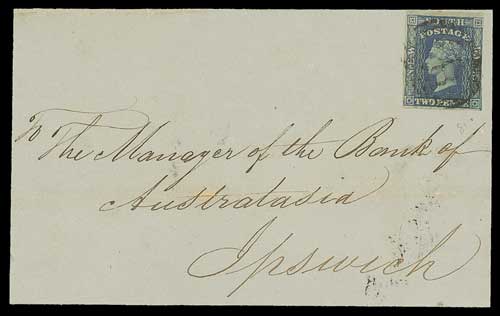 SOUTH
POSTAGE
NEW
TWO PENCE
To
The Manager of the Bank of
Australasia
Ipswich